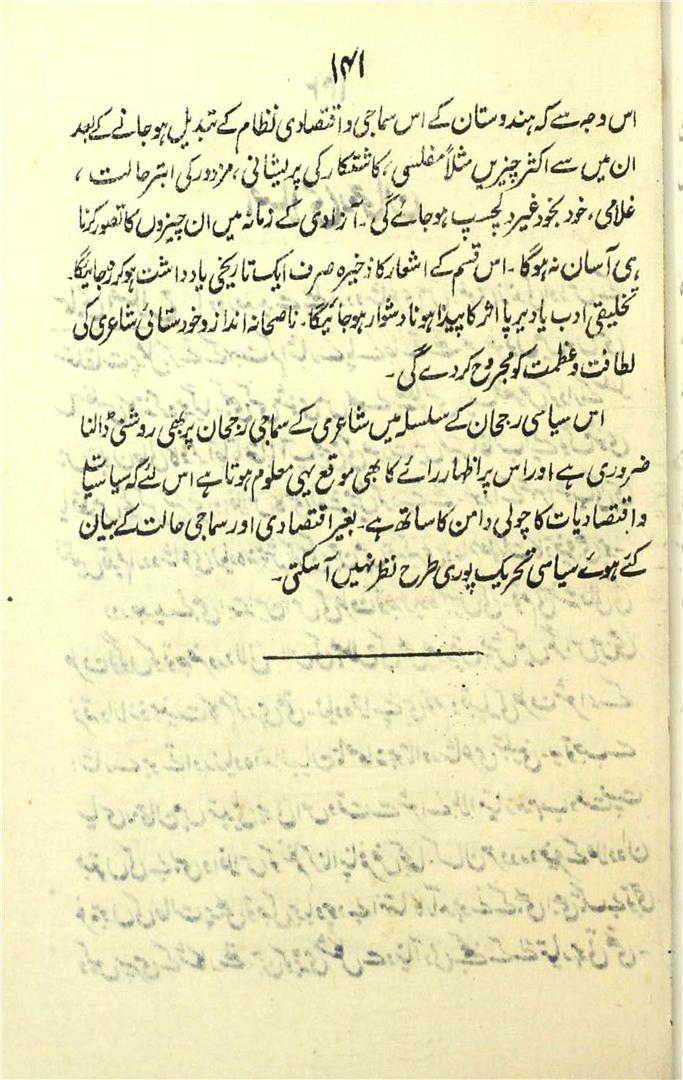 ۱۴۱
اس وجہ سے کہ ہندوستان کے اس سماجی و اقتصادی نظام کے تبدیل ہو جانے کے بعد
ان میں سے اکثر چیزیں مثلاً مفلسی، کاشتکار کی پریشانی، مزدور کی ابتر حالت،
غلامی، خود بخود غیر دلچسپ ہو جائے گی۔ آزادی کے زمانہ میں ان چیزوں کا تصور کرنا
ہی آسان نہ ہوگا۔ اس قسم کے اشعار کا ذخیرہ صرف ایک تاریخی یادداشت ہو کر رہ جائیگا۔
تخلیقی ادب یا دیرپا اثر کا پیدا ہونا دشوار ہو جائیگا۔ ناصحانہ انداز و خودستائی شاعری کی
لطافت و عظمت کو مجروح کر دے گی۔
اس سیاسی رجحان کے سلسلہ میں شاعری کے سماجی رجحان پر بھی روشنی ڈالنا
ضروری ہے اور اس پر اظہار رائے کا بھی موقع یہی معلوم ہوتا ہے اس لئے کہ سیاسیات
و اقتصادیات کا چولی دامن کا ساتھ ہے۔ بغیر اقتصادی اور سماجی حالت کے بیان
کئے ہوئے سیاسی تحریک پوری طرح نظر نہیں آ سکتی۔